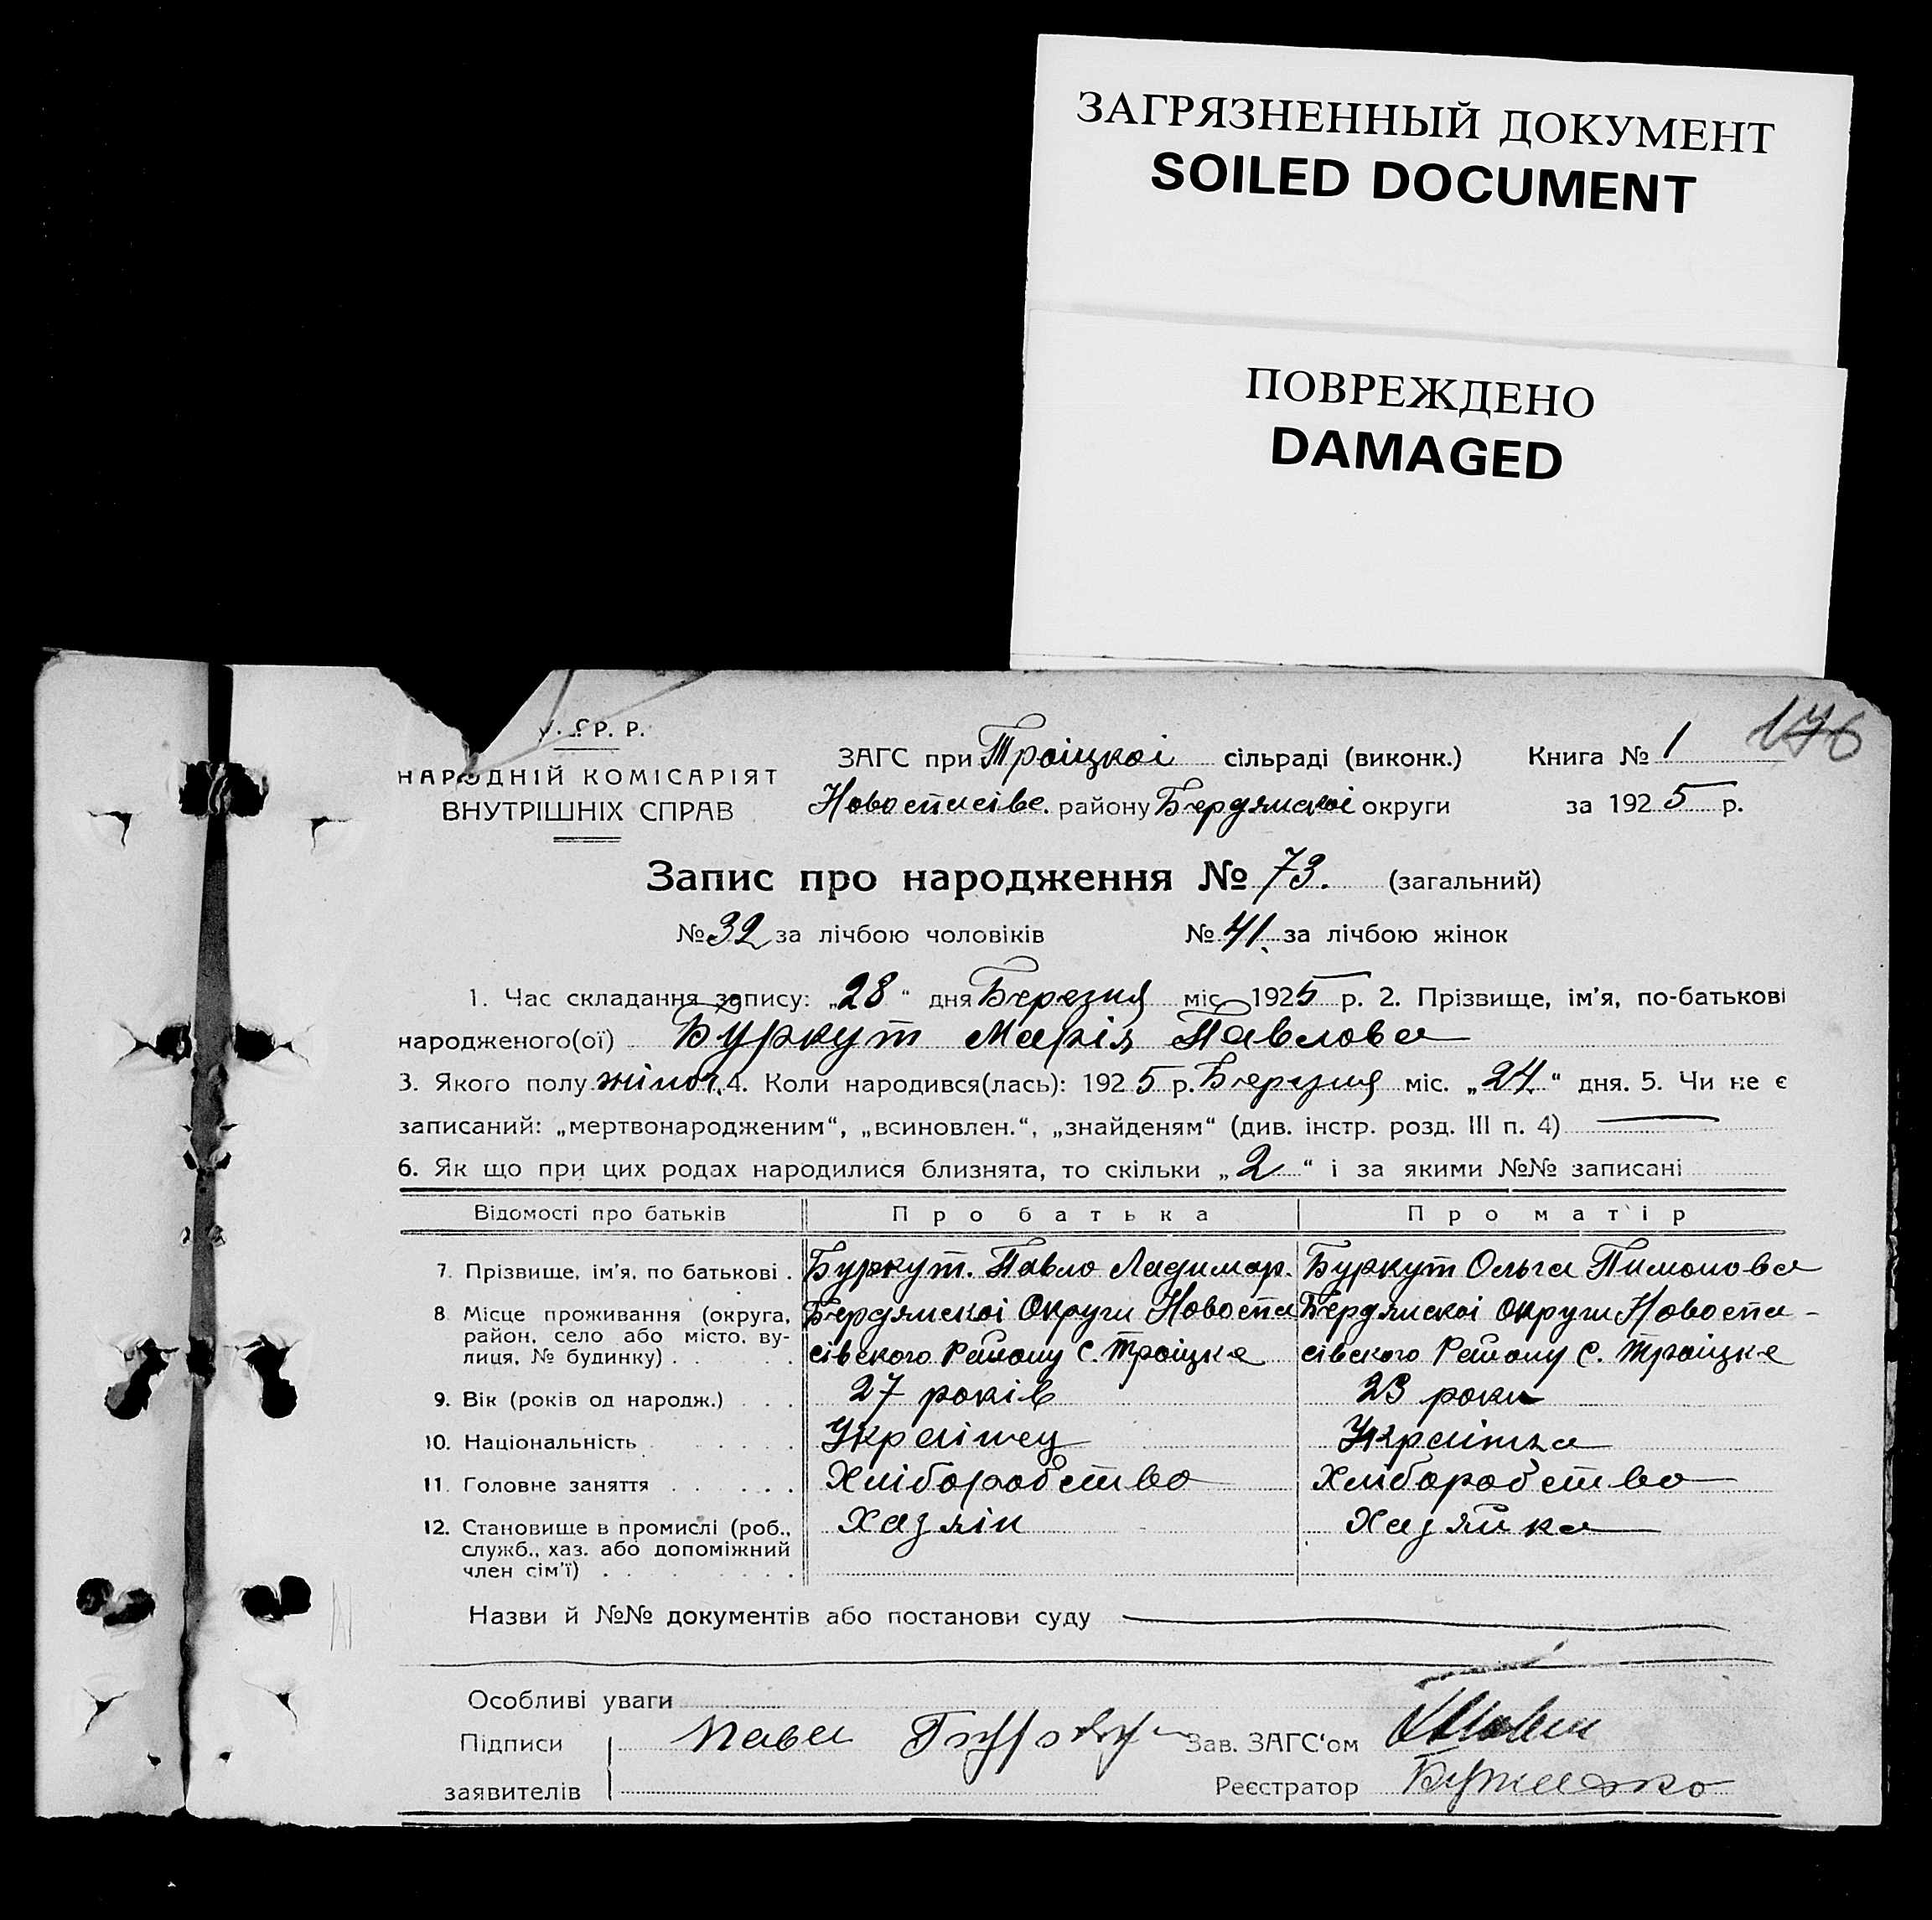 ЗАГРЯЗНЕННЫЙ ДОКУМЕНТ
SOILED DOCUMENT
ПОВРЕЖДЕНО
DAMAGED
176
У. С. Р. Р.
НАРОДНІЙ КОМІСАРІЯТ
ВНУТРІШНІХ СПРАВ
ЗАГС при Троіцкоі сільраді (виконк.) Книга № 1
Новоспасівс. району Бердянскоі округи за 1925 р.
Запис про народження № 73. (загальний)
№ 32 за лічбою чоловіків № 41. за лічбою жінок
1. Час складання запису: „28“ дня Березня міс. 1925 р. 2. Прізвище, ім’я, по-батькові
народженого(ої) Буркут Марія Павлова
3. Якого полу жіноч. 4. Коли народився(лась): 1925 р. Березня міс. „24“ дня. 5. Чи не є
записаний: „мертвонародженим“, „всиновлен.“, „знайденям“ (див. інстр. розд. III п. 4)
6. Як що при цих родах народилися близнята, то скільки „2“ і за якими №№ записані
Відомості про батьків Про батька Про матір
7. Прізвище, ім’я, по батькові . Буркут. Павло Ладимар. Буркут Ольга Пимонова
8 Місце проживання (округа, район, село або місто, вулиця, № будинку) . Бердянскоі Округи Новоспа Бердянскоі Округи Новоспа-
сівского Району С. Троіцке сівского Району С. Троіцке
9. Вік (років од народж.) 27 років 23 роки
10. Національність Украінец Украінка
11. Головне заняття Хліборобство Хліборобство
12. Становище в промислі (роб., Хазяін Хазяйка
служб., хаз. або допоміжний
член сім’ї)
Назви й №№ документів або постанови суду
Особливі уваги
Підписи Павел Зав. ЗАГС‘ом
заявителів Реєстратор